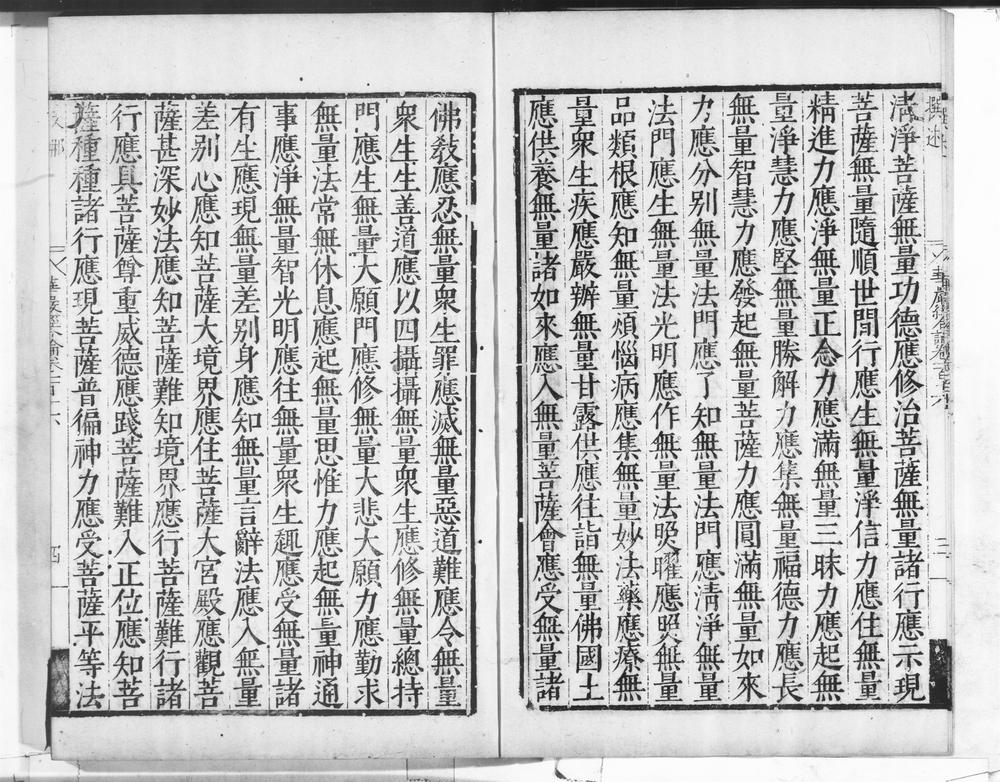 清淨菩薩無量功德應修治菩薩無量諸行應示現
菩薩無量隨順世間行應生無量淨信力應住無量
精進力應淨無量正念力應滿無量三昧力應起無
量淨慧力應堅無量勝解力應集無量福德力應長
無量智慧力應發起無量菩薩力應圓滿無量如來
力應分別無量法門應了知無量法門應清淨無量
法門應生無量法光明應作無量法照耀應照無量
品類根應知無量煩惱病應集無量妙法藥應療無
量衆生疾應嚴辦無量甘露供應往詣無量佛國土
應供養無量諸如來應入無量菩薩會應受無量諸
佛敎應忍無量衆生罪應滅無量惡道難應令無量
衆生生善道應以四攝攝無量衆生應修無量總持
門應生無量大願門應修無量大悲大願力應勤求
無量法常無休息應起無量思惟力應起無量神通
事應淨無量智光明應往無量衆生趣應受無量諸
有生應現無量差別身應知無量言辭法應入無量
差別心應知菩薩大境界應住菩薩大宮殿應觀菩
薩甚深妙法應知菩薩難知境界應行菩薩難行諸
行應具菩薩尊重威德應踐菩薩難入正位應知菩
薩種種諸行應現菩薩普徧神力應受菩薩平等法